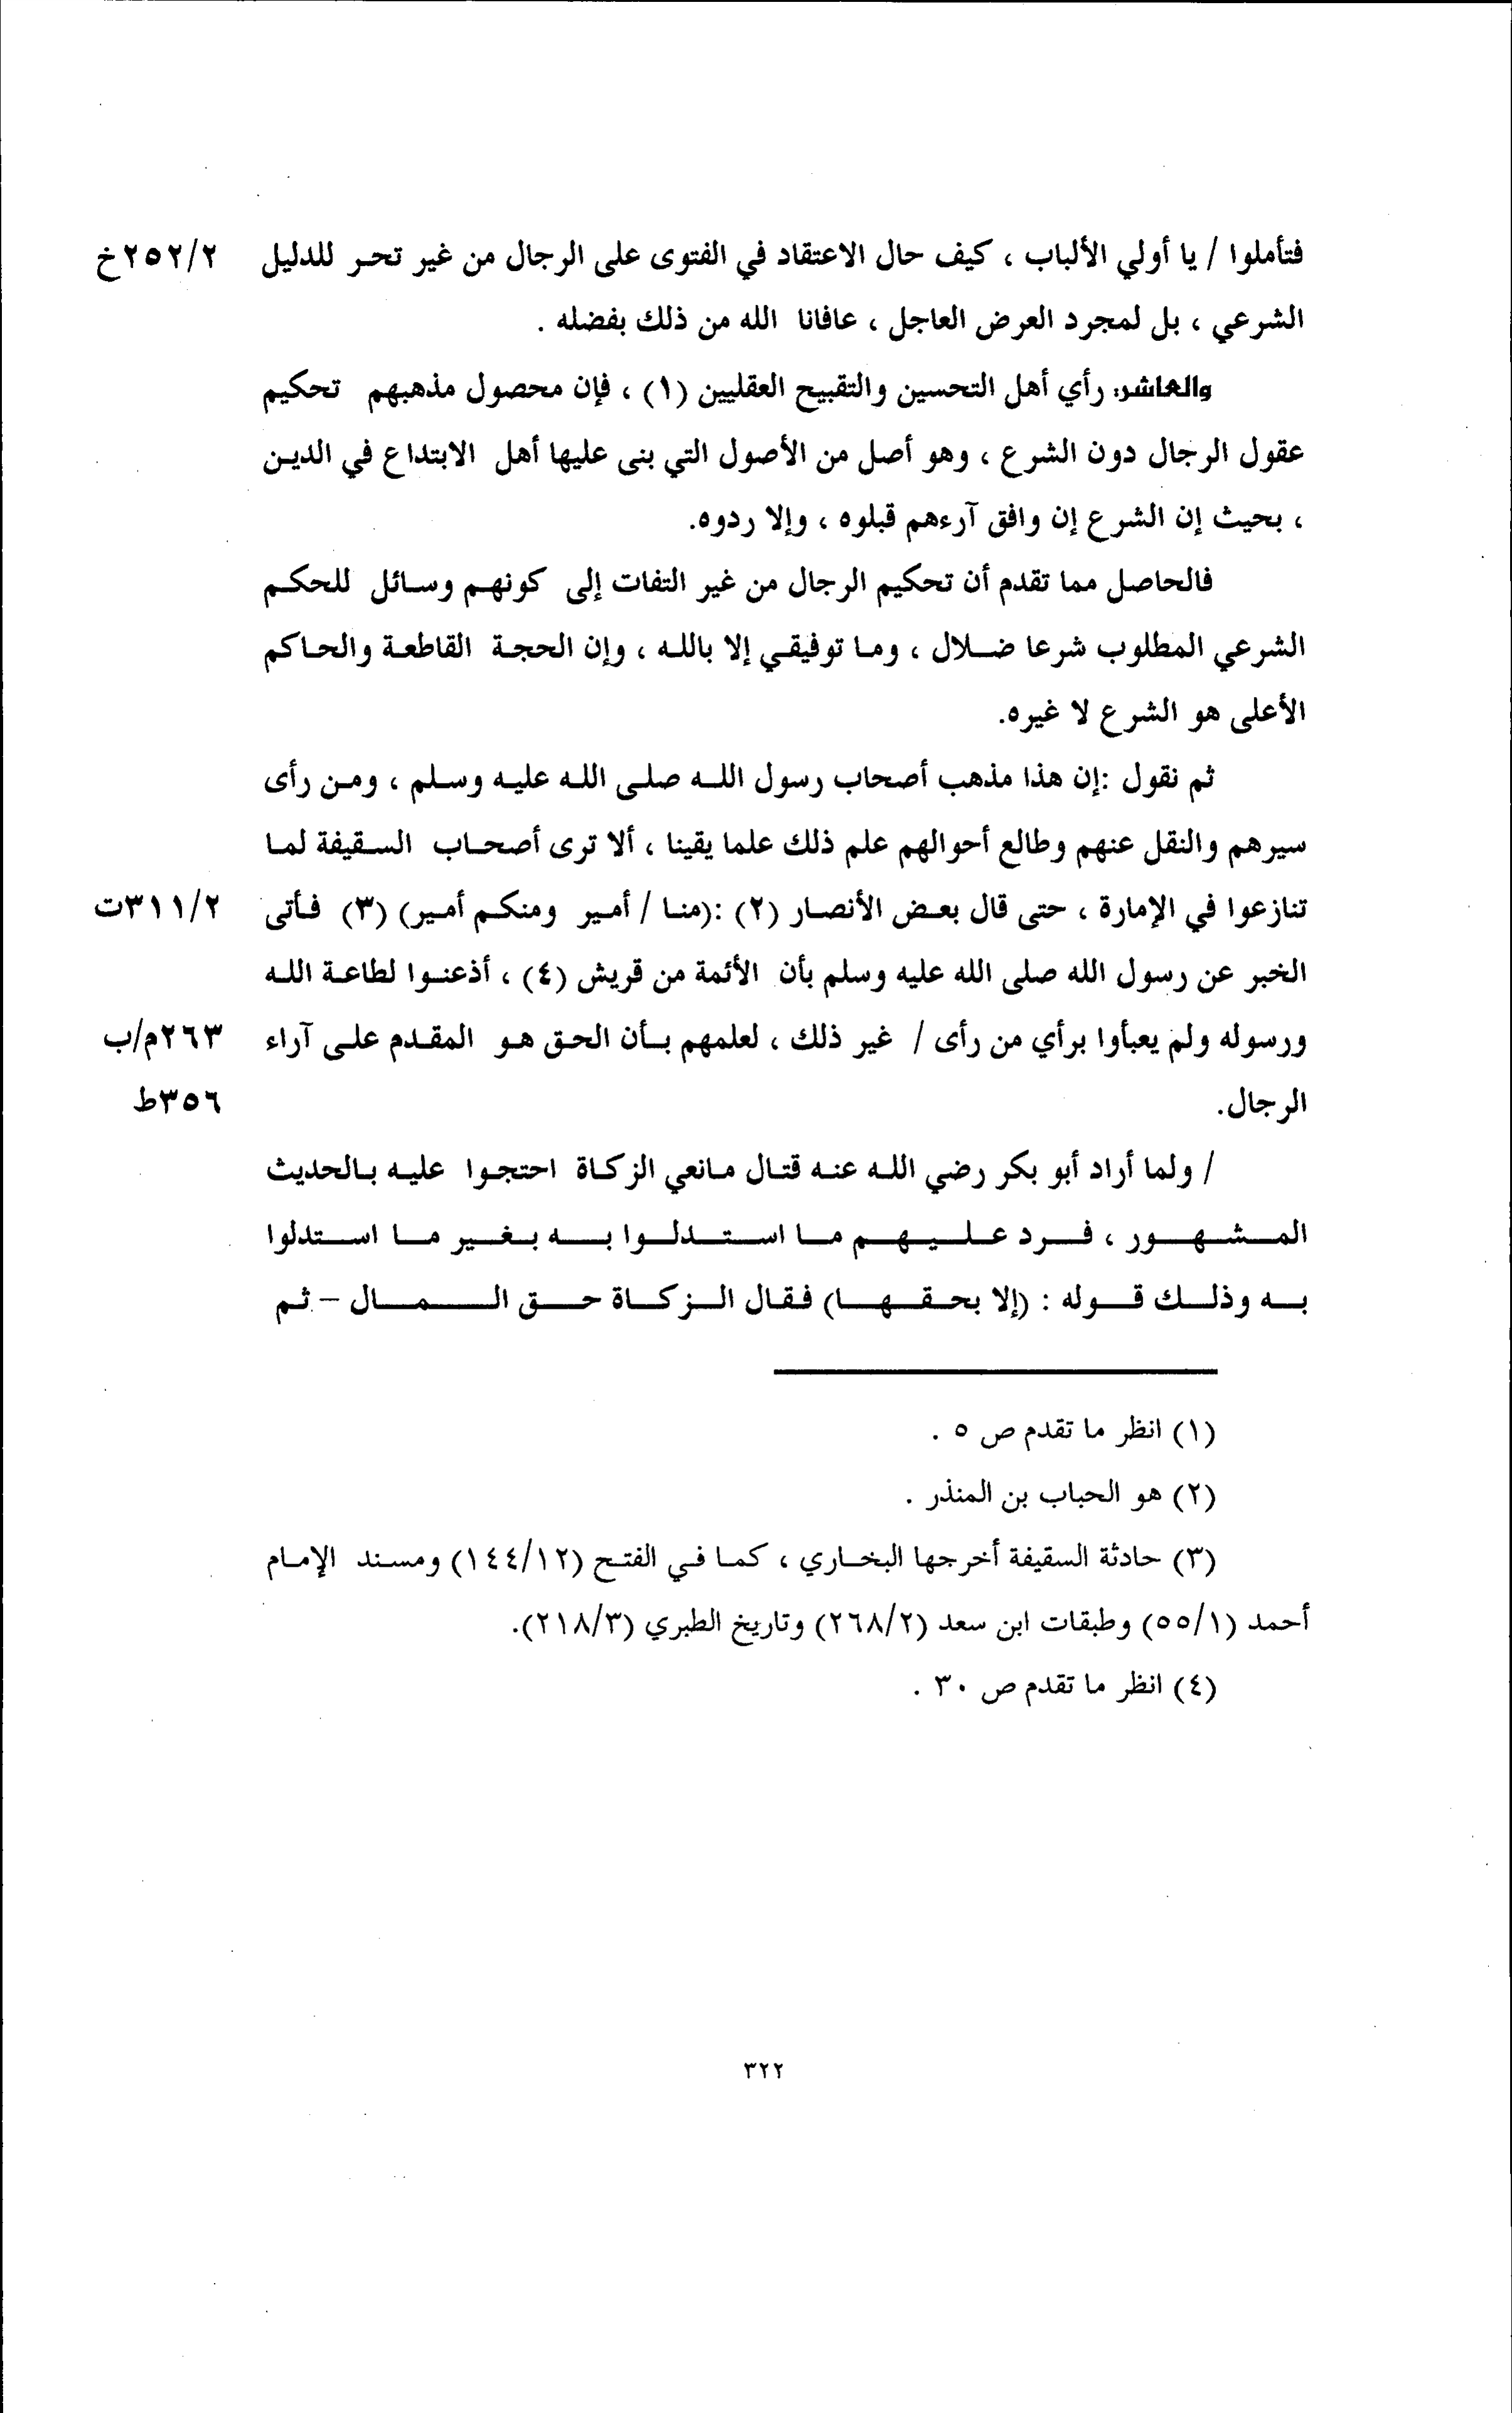 فتأملوا / يا أولي الألباب ، كيف حال الاعتقاد في الفتوى على الرجال من غير تحر للدليل ٢/٢٥٢خ
الشرعي ، بل لمجرد العرض العاجل ، عافانا الله من ذلك بفضله .
والعاشر: رأي أهل التحسين والتقبيح العقليين (١) ، فإن محصول مذهبهم تحكيم
عقول الرجال دون الشرع ، وهو أصل من الأصول التي بنى عليها أهل الابتداع في الدين
، بحيث إن الشرع إن وافق آرءهم قبلوه ، وإلا ردوه.
فالحاصل مما تقدم أن تحكيم الرجال من غير التفات إلى كونهم وسائل للحكم
الشرعي المطلوب شرعا ضلال ، وما توفيقي إلا بالله ، وإن الحجة القاطعة والحاكم
الأعلى هو الشرع لا غيره.
ثم نقول :إن هذا مذهب أصحاب رسول الله صلى الله عليه وسلم ، ومن رأى
سيرهم والنقل عنهم وطالع أحوالهم علم ذلك علما يقينا ، ألا ترى أصحاب السقيفة لما
تنازعوا في الإمارة ، حتى قال بعض الأنصار (٢) :(منا / أمير ومنكم أمير) (٣) فأتى ٢/٣١١ت
الخبر عن رسول الله صلى الله عليه وسلم بأن الأئمة من قريش (٤) ، أذعنوا لطاعة الله
ورسوله ولم يعبأوا برأي من رأى / غير ذلك ، لعلمهم بأن الحق هو المقدم على آراء ٢٦٣م/ب
الرجال. ٣٥٦ط
/ ولما أراد أبو بكر رضي الله عنه قتال مانعي الزكاة احتجوا عليه بالحديث
المشهور ، فرد عليهم ما استدلوا به بغير ما استدلوا
به وذلك قوله : (إلا بحقها) فقال الزكاة حق المال – ثم
(١) انظر ما تقدم ص ٥ .
(٢) هو الحباب بن المنذر .
(٣) حادثة السقيفة أخرجها البخاري ، كما في الفتح (١٢/١٤٤) ومسند الإمام
أحمد (١/٥٥) وطبقات ابن سعد (٢/٢٦٨) وتاريخ الطبري (٣/٢١٨).
(٤) انظر ما تقدم ص ٣٠ .
٣٢٢